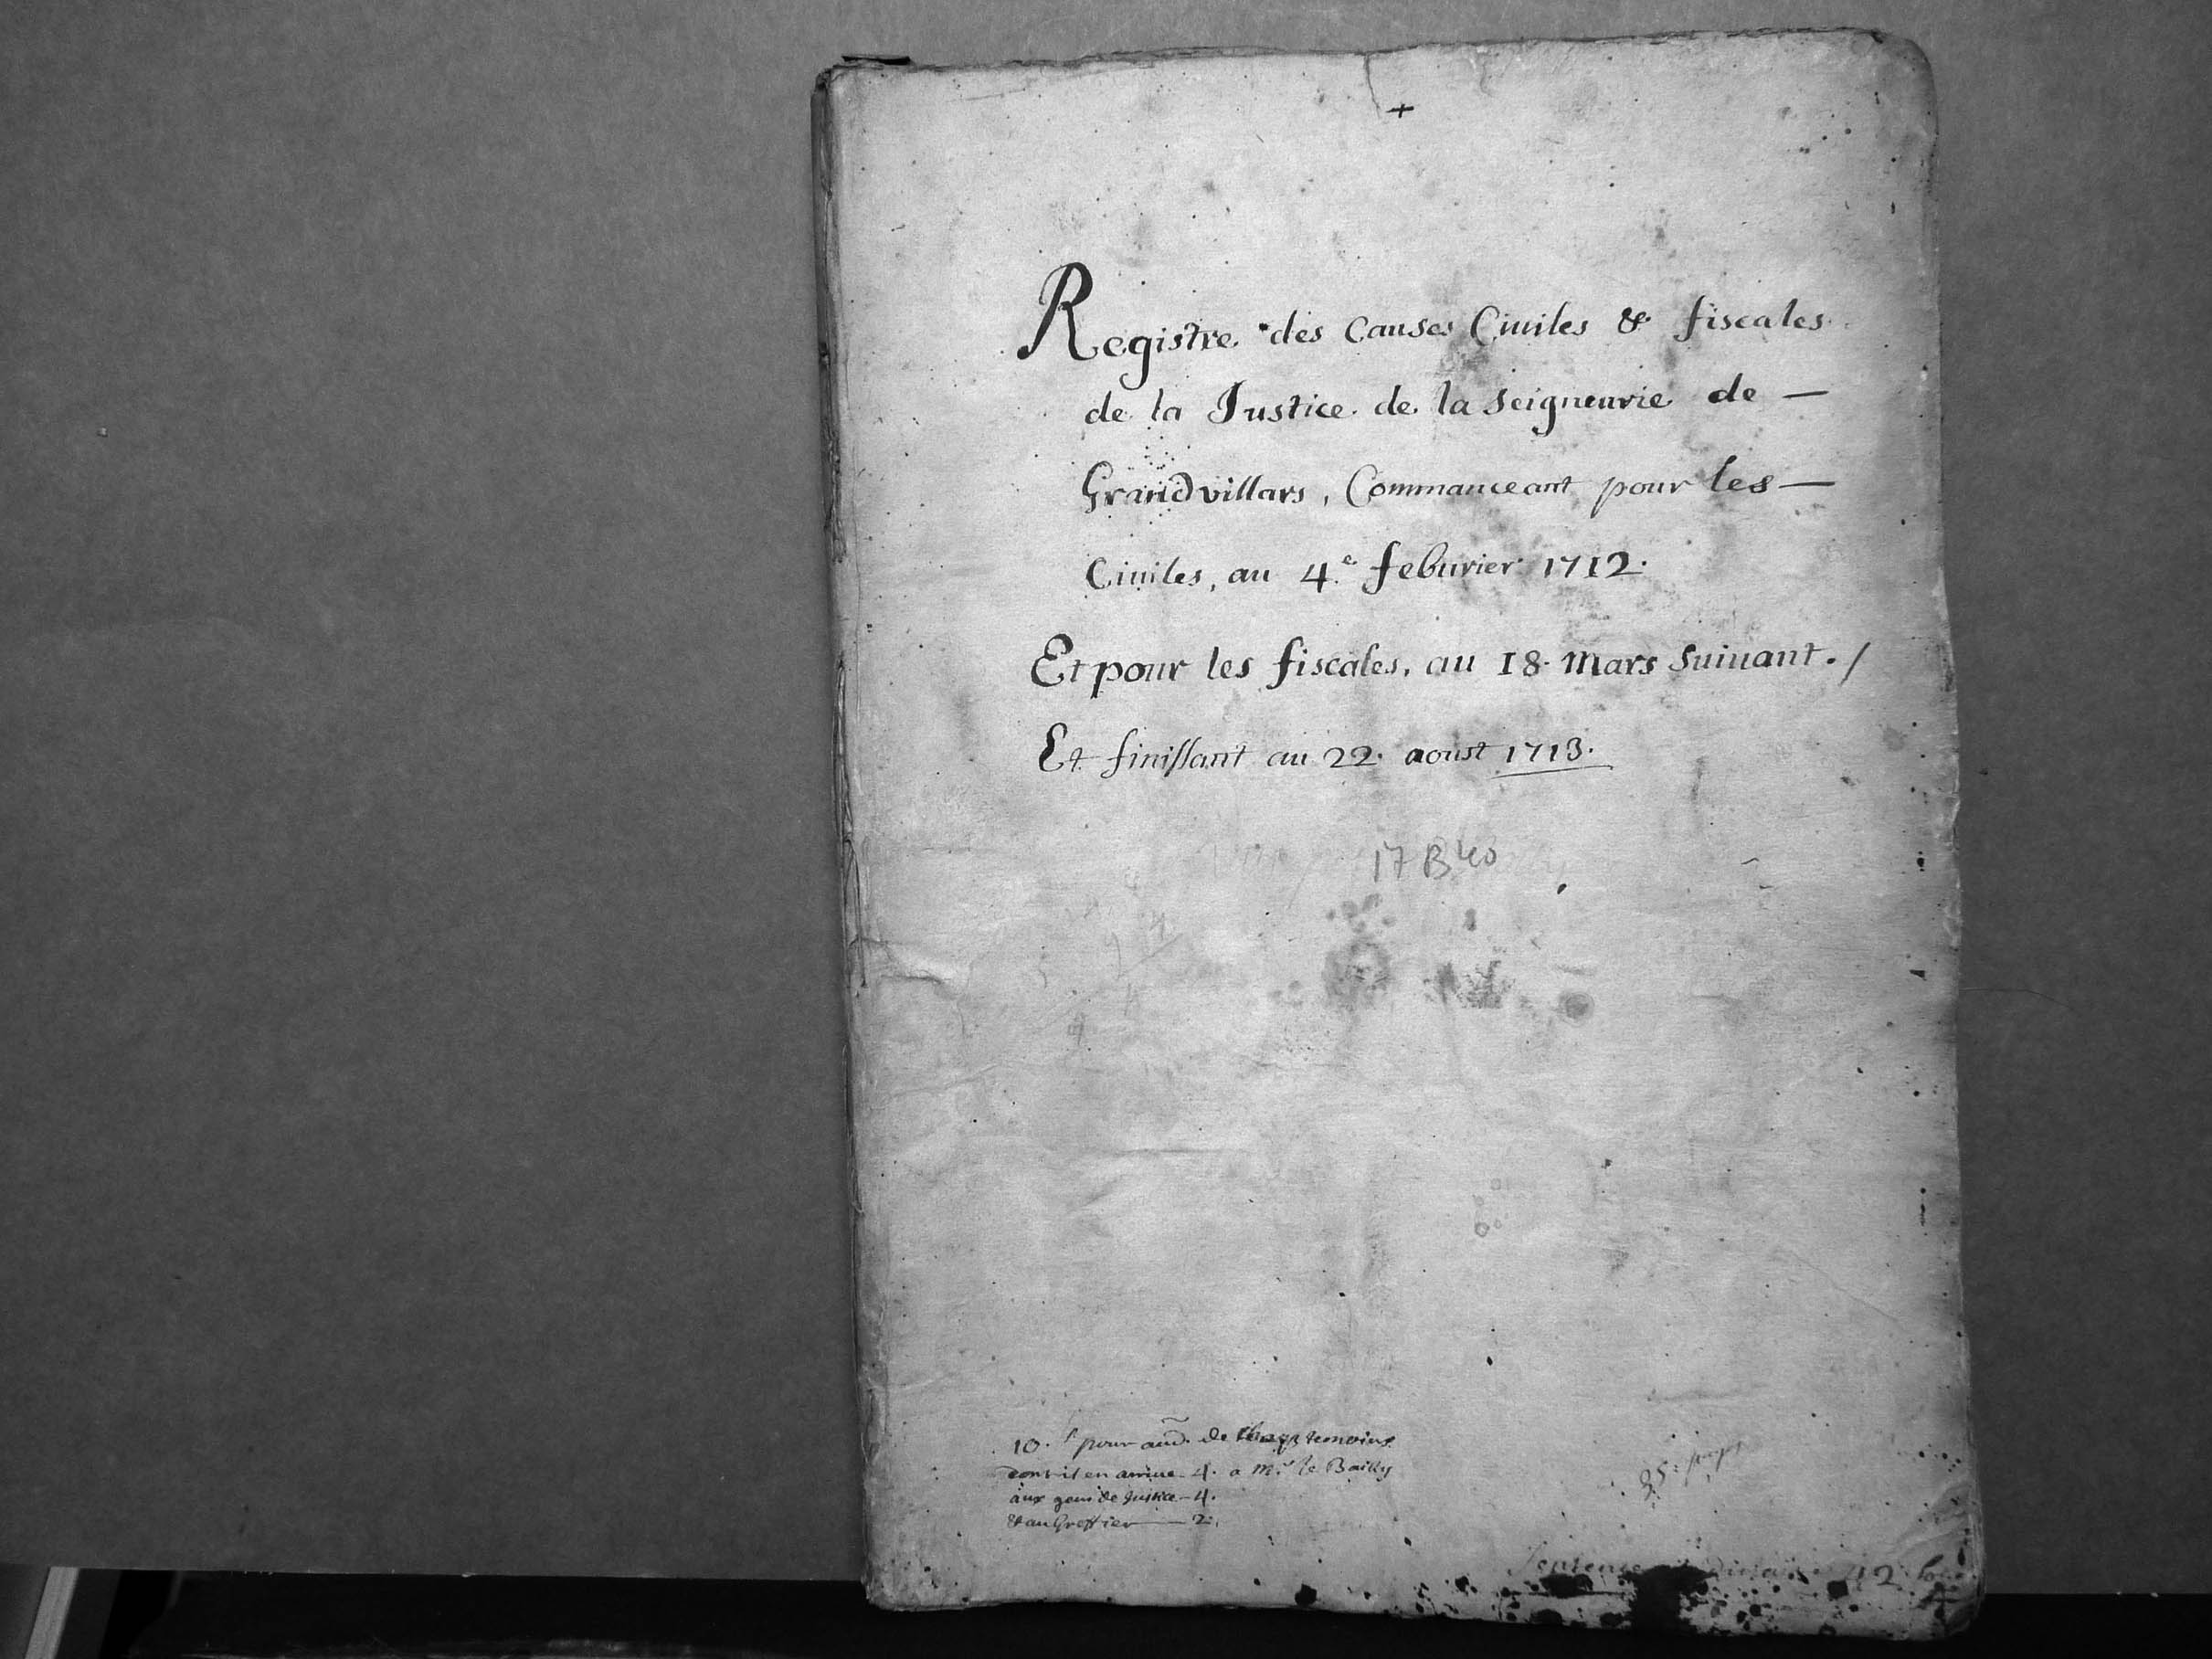 +
Registre des Causes Ciuiles & fiscales
de la Justice de la Seigneurie de —
Grandvillars, Commanceant pour les —
Ciuiles, au 4.e feburier 1712.
Et pour les fiscales, au 18. Mars Suiuant. /
Et finissant au 22. aoust 1713.
17 B 40
10. s pour aud. de temoins
dont il en arriue 4. a Mr. le Bailly
aux gens de Justice — 4.
& au Greffier — 2.